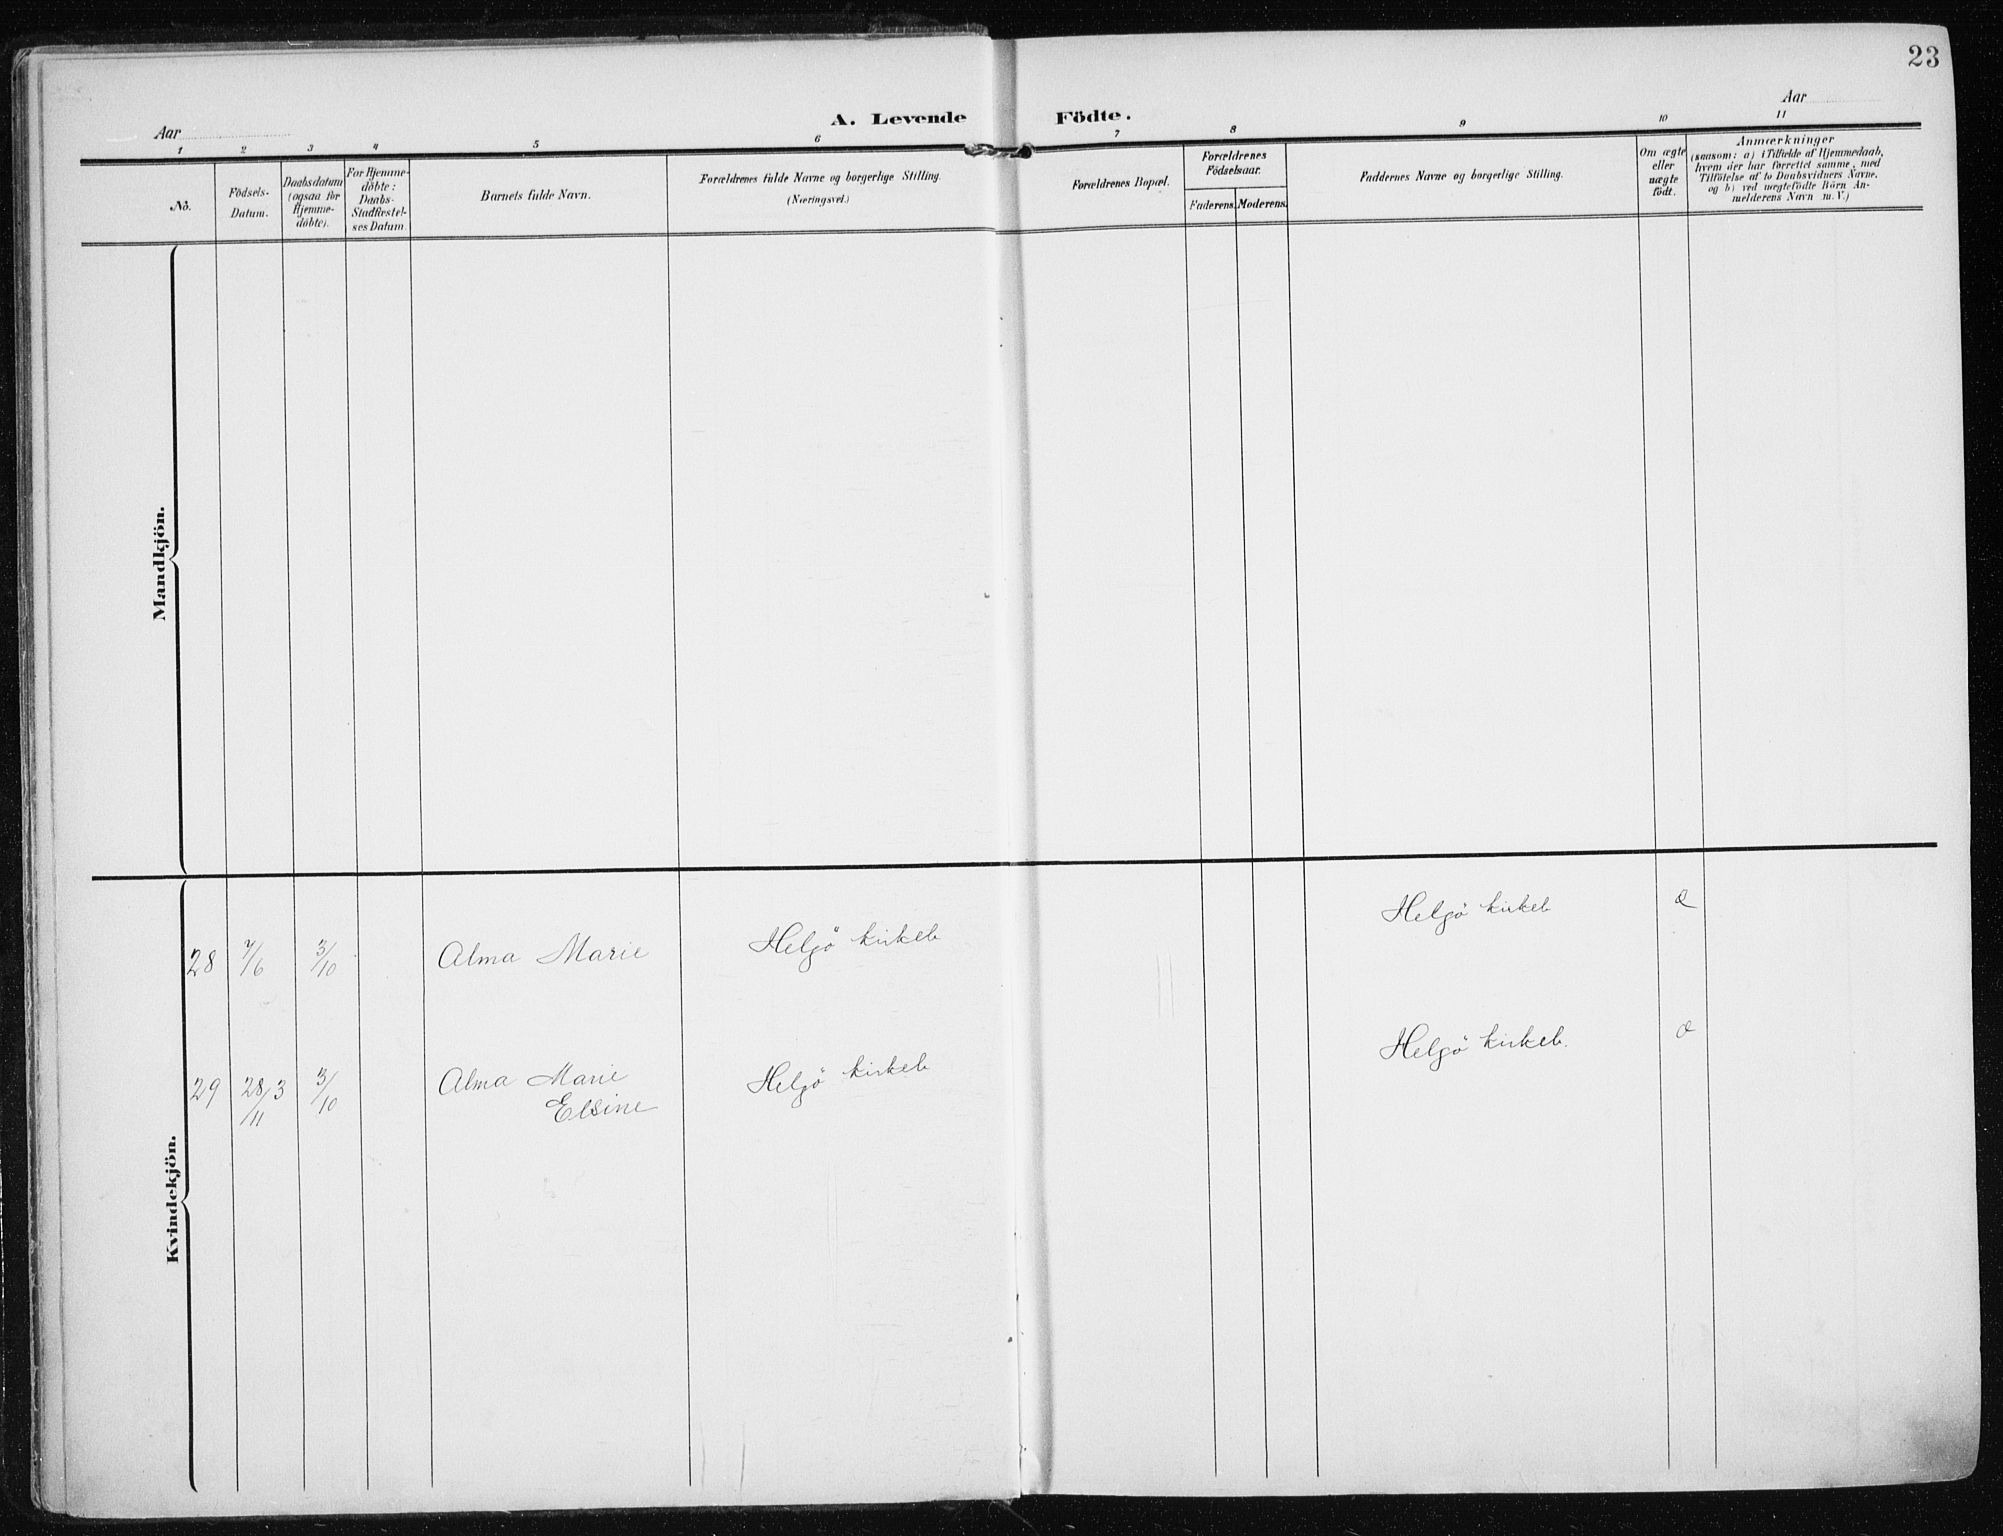 23
Aar
A. Levende Födte.
Aar
1 2 3 4 5 6 7 8 9 10 11
No.
Födsels-
Datum.
Daabsdatum
(ogsaa for
Hjemme-
döbte).
For Hjemme-
döbte:
Daabs-
Stadfæstel-
ses Datum.
Barnets fulde Navn.
Forældrenes fulde Navne og borgerlige Stilling.
(Næringsvei.)
Forældrenes Bopæl.
Forældrenes
Födselsaar.
Faderens. Moderens.
Faddernes Navne og borgerlige Stilling.
Om ægte
eller
uægte
födt.
Anmærkninger
(saasom: a) i Tilfælde af Hjemmedaab,
hvem der har forrettet samme, med
Tilföielse af to Daabsvidners Navne,
og b) ved uægtefödte Börn An-
melderens Navn m. V.)
Mandkjön.
Kvindekjön.
28 7/6 3/10 Alma Marie Helgö kirkeb Helgö kirkeb æ
29 28/11 3 3/10 Alma Marie Helgö kirkeb Helgö kirkeb.
Elsine